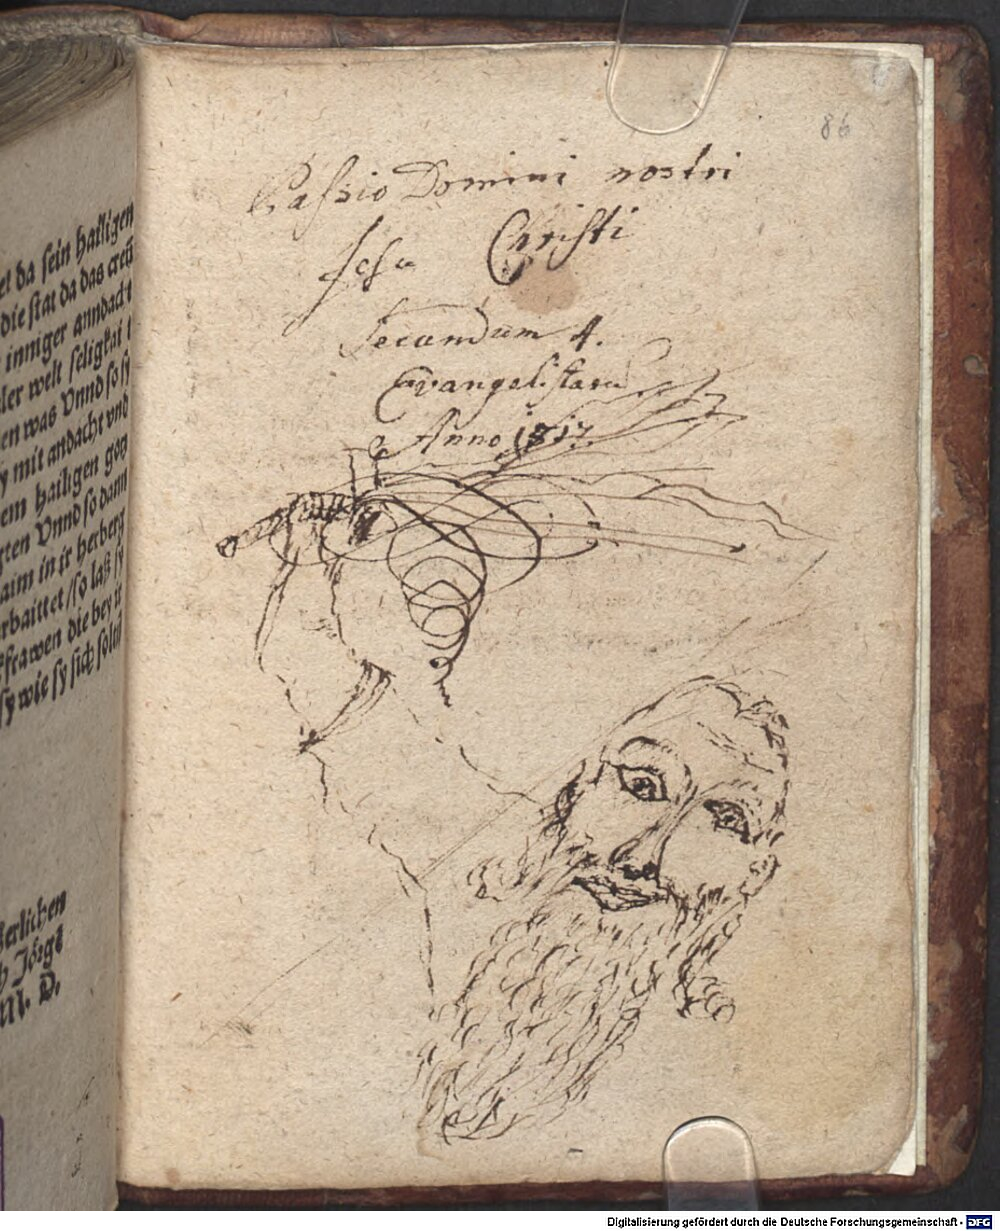 et da sein hailigen
die stat da das creŭtz
inniger anndacht
ler welt seligkai t
en was Vnnd so sy
y mit andacht vnd
em hailigen gog
rten Vnnd so dann
aim in ir herberg
rbaittet / so laß sy
ffrawen die bey ir
sy wie sy sich sollen
erlichen
h Jörgē
M. D.
86
Passio Domini nostri
Jesu Christi
secundum 4.
Evangelistaru
Anno 1517.
Digitalisierung gefördert durch die Deutsche Forschungsgemeinschaft - DFG